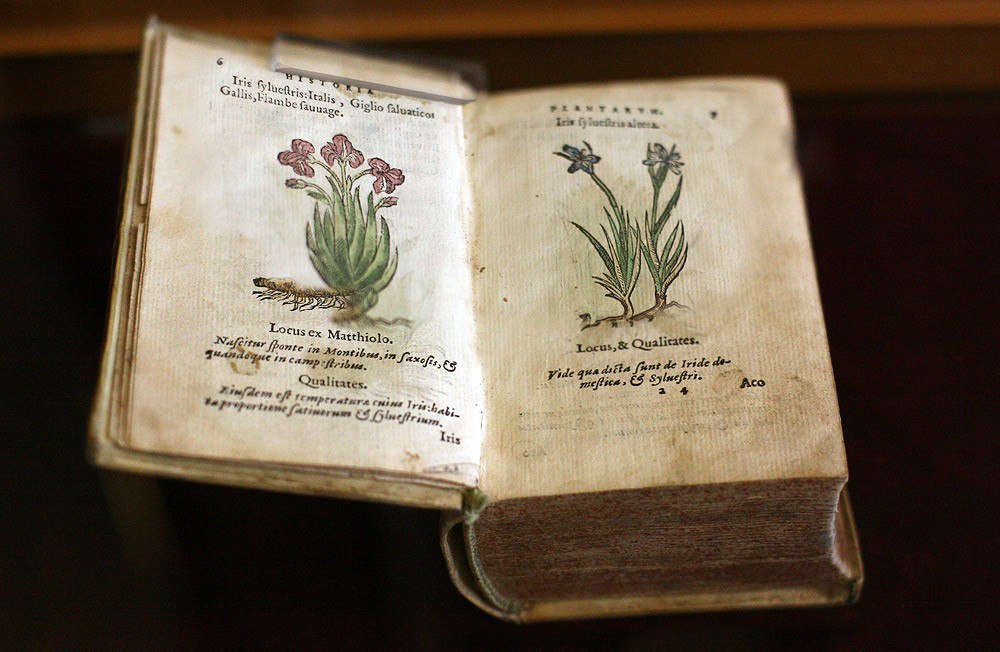 6
HISTORIA
Iris ſylueſtris: Italis, Giglio ſaluatico:
Gallis, Flambe ſauuage.
Locus ex Matthiolo.
Naſcitur ſponte in Montibus, in ſaxoſis, &
quandoque in campeſtribus.
Qualitates.
Eiuſdem eſt temperaturæ cuius Iris: habi-
ta proportione ſatiuorum & ſylueſtrium.
Iris
PLANTARVM.
7
Iris ſylueſtris altera.
Locus, & Qualitates.
Vide quæ dicta ſunt de Iride do-
meſtica, & Sylueſtri.
a 4
Aco